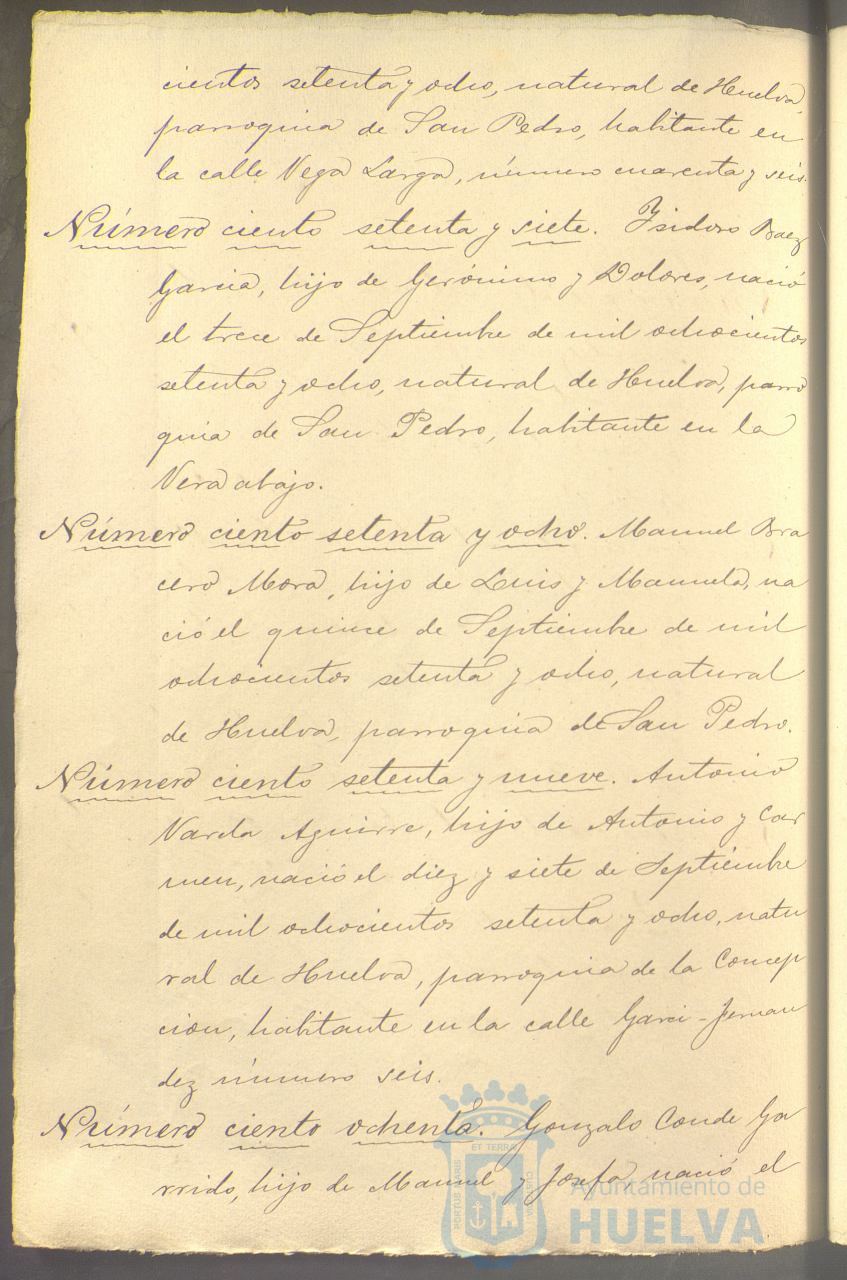 cientos setenta y ocho, natural de Huelva,
parroquia de San Pedro, habitante en
la calle Vega Larga, número cuarenta y seis.
Número ciento setenta y siete. Isidoro Baez
García, hijo de Gerónimo y Dolores, nació
el trece de Septiembre de mil ochocientos
setenta y ocho, natural de Huelva, parro
quia de San Pedro, habitante en la
Vera abajo.
Número ciento setenta y ocho. Manuel Bra
cero Mora, hijo de Luis y Manuela, na
ció el quince de Septiembre de mil
ochocientos setenta y ocho, natural
de Huelva, parroquia de San Pedro.
Número ciento setenta y nueve. Antonio
Varela Aguirre, hijo de Antonio y Car
men, nació el diez y siete de Septiembre
de mil ochocientos setenta y ocho, natu
ral de Huelva, parroquia de la Concep
cion, habitante en la calle Garci-Fernan
dez número seis.
Número ciento ochenta. Gonzalo Conde Ga
rrido, hijo de Manuel y Josefa nació el
PORTUS MARIS
ET TERRÆ
CUSTODIA
Ayuntamiento de
HUELVA